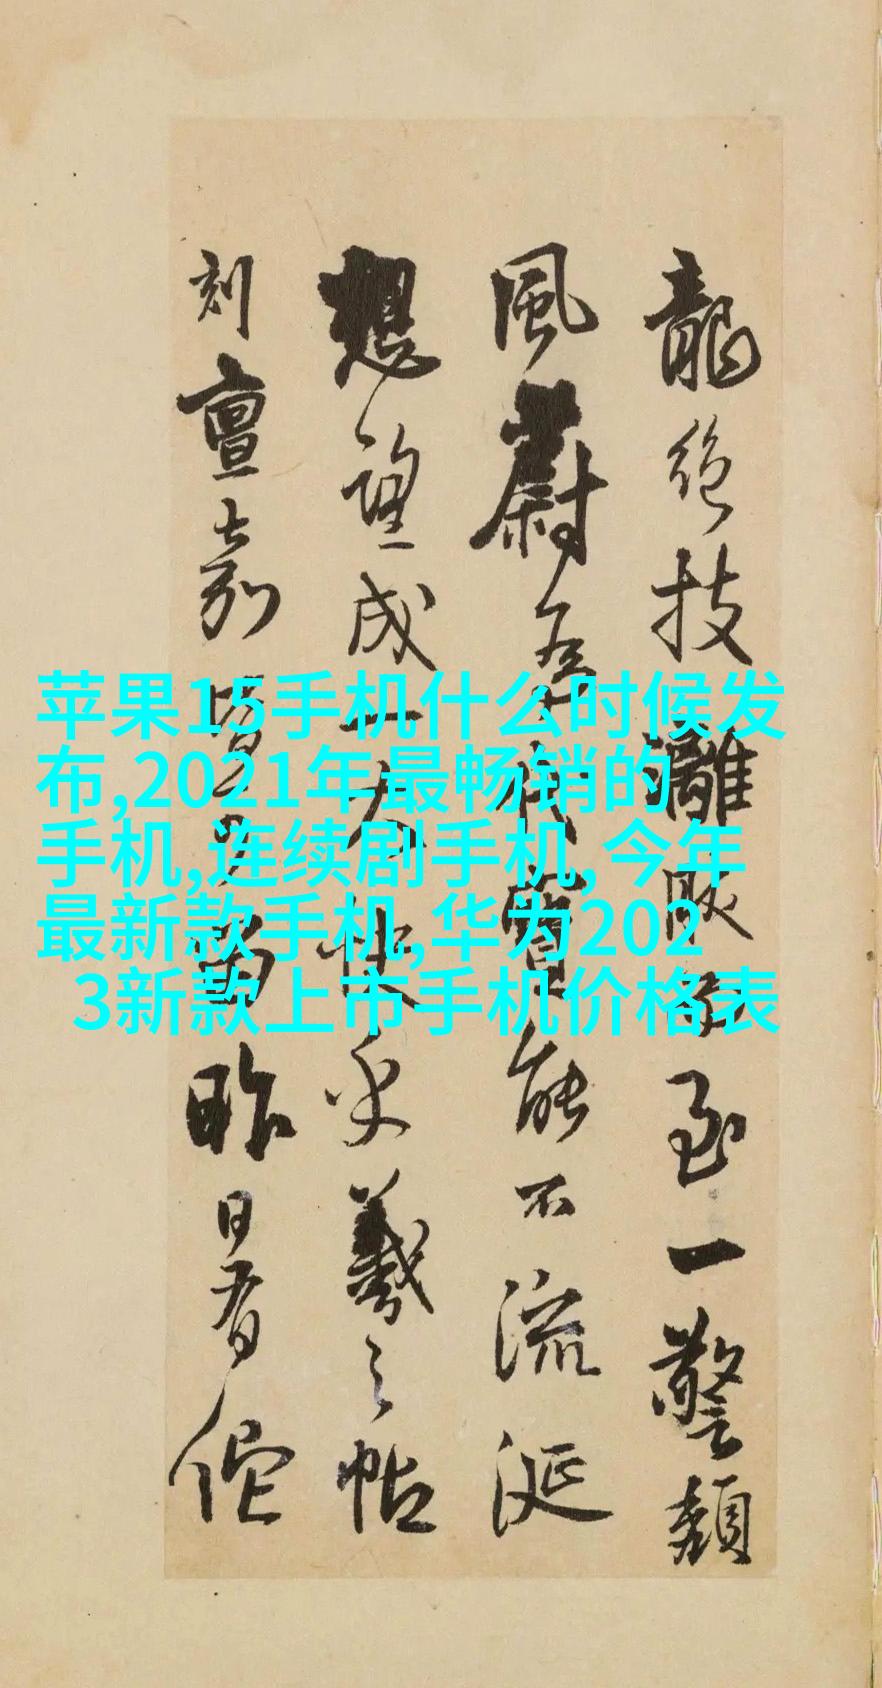 苹果15手机什么时候发
布,2021年最畅销的
手机,连续剧手机,今年
最新款手机,华为202
3新款上市手机价格表
龍絕技 離 至一警類
風蔚 代寶 能不流涎
想望成一 快乎羲之帖
刻 嘉 昨日看